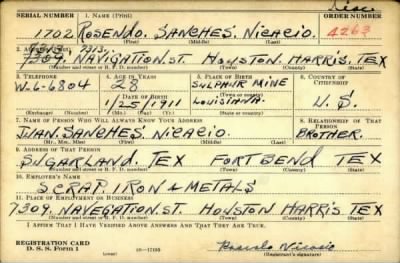 Disc.
SERIAL NUMBER 1. NAME (Print) ORDER NUMBER
1702 ROSENDO. SANCHES. NICACIO. 4263
(First) (Middle) (Last)
7313.
7309. NAVIGATION.ST. HOUSTON. HARRIS. TEX
(Number and street or R. F. D. number) (Town) (County) (State)
3. TELEPHONE 4. AGE IN YEARS 5. PLACE OF BIRTH 6. COUNTRY OF CITIZENSHIP
W-6-6804 28 SULPHUR MINE
DATE OF BIRTH (Town or county)
1/25/1911 LOUISIANA. U. S.
(Exchange) (Number) (Mo.) (Day) (Yr.) (State or country)
7. NAME OF PERSON WHO WILL ALWAYS KNOW YOUR ADDRESS 8. RELATIONSHIP OF THAT PERSON
JUAN. SANCHES NICACIO. BROTHER.
(Mr., Mrs., Miss) (First) (Middle) (Last)
9. ADDRESS OF THAT PERSON
SUGARLAND. TEX FORT BEND TEX
(Number and street or R. F. D. number) (Town) (County) (State)
10. EMPLOYER'S NAME
SCRAP. IRON & METALS
11. PLACE OF EMPLOYMENT OR BUSINESS
7309. NAVEGATION.ST. HOUSTON HARRIS TEX
(Number and street or R. F. D. number) (Town) (County) (State)
I AFFIRM THAT I HAVE VERIFIED ABOVE ANSWERS AND THAT THEY ARE TRUE.
REGISTRATION CARD
D. S. S. FORM 1 (over) 16—17105 (Registrant's signature)